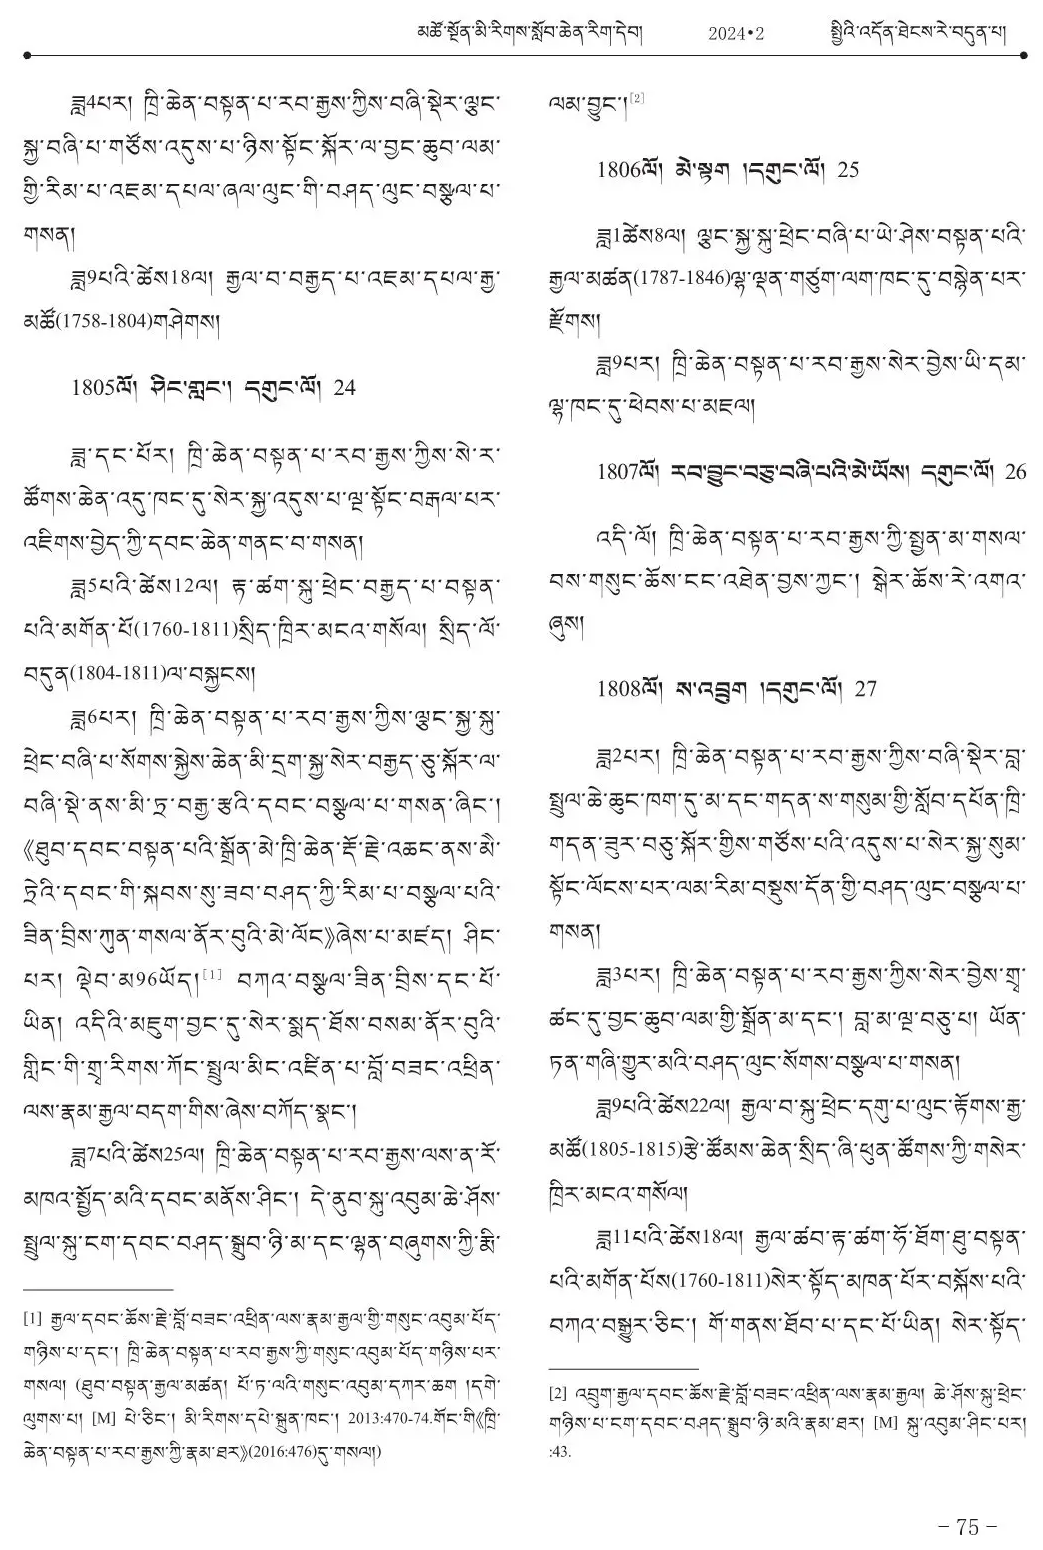 མཚོ་སྔོན་མི་རིགས་སློབ་ཆེན་རིག་དེབ། 2024•2 སྤྱིའི་འདོན་ཐེངས་རེ་བདུན་པ།
ཟླ4པར། ཁྲི་ཆེན་བསྟན་པ་རབ་རྒྱས་ཀྱིས་བཞི་སྡེར་ལྕང་
སྐྱ་བཞི་པ་གཙོས་འདུས་པ་ཉིས་སྟོང་སྐོར་ལ་བྱང་ཆུབ་ལམ་
གྱི་རིམ་པ་འཇམ་དཔལ་ཞལ་ལུང་གི་བཤད་ལུང་བསྩལ་པ་
གསན།
ཟླ9པའི་ཚེས18ལ། རྒྱལ་བ་བརྒྱད་པ་འཇམ་དཔལ་རྒྱ་
མཚོ(1758-1804)གཤེགས།
1805ལོ། ཤིང་གླང་། དགུང་ལོ། 24
ཟླ་དང་པོར། ཁྲི་ཆེན་བསྟན་པ་རབ་རྒྱས་ཀྱིས་སེ་ར་
ཚོགས་ཆེན་འདུ་ཁང་དུ་སེར་སྐྱ་འདུས་པ་ལྔ་སྟོང་བརྒལ་པར་
འཇིགས་བྱེད་ཀྱི་དབང་ཆེན་གནང་བ་གསན།
ཟླ5པའི་ཚེས12ལ། རྟ་ཚག་སྐུ་ཕྲེང་བརྒྱད་པ་བསྟན་
པའི་མགོན་པོ(1760-1811)སྲིད་ཁྲིར་མངའ་གསོལ། སྲིད་ལོ་
བདུན(1804-1811)ལ་བསྐྱངས།
ཟླ6པར། ཁྲི་ཆེན་བསྟན་པ་རབ་རྒྱས་ཀྱིས་ལྕང་སྐྱ་སྐུ་
ཕྲེང་བཞི་པ་སོགས་སྐྱེས་ཆེན་མི་དྲག་སྐྱ་སེར་བརྒྱད་ཅུ་སྐོར་ལ་
བཞི་སྡེ་ནས་མི་ཏྲ་བརྒྱ་རྩའི་དབང་བསྩལ་པ་གསན་ཞིང་།
《ཐུབ་དབང་བསྟན་པའི་སྒྲོན་མེ་ཁྲི་ཆེན་རྡོ་རྗེ་འཆང་ནས་མཻ་
ཏྲེའི་དབང་གི་སྐབས་སུ་ཟབ་བཤད་ཀྱི་རིམ་པ་བསྩལ་པའི་
ཟིན་བྲིས་ཀུན་གསལ་ནོར་བུའི་མེ་ལོང》ཞེས་པ་མཛད། ཤིང་
པར། ལྡེབ་མ96ཡོད།[1] བཀའ་བསྩལ་ཟིན་བྲིས་དང་པོ་
ཡིན། འདིའི་མཇུག་བྱང་དུ་སེར་སྨད་ཐོས་བསམ་ནོར་བུའི་
གླིང་གི་གྲྭ་རིགས་ཀོང་སྤྲུལ་མིང་འཛིན་པ་བློ་བཟང་འཕྲིན་
ལས་རྣམ་རྒྱལ་བདག་གིས་ཞེས་བཀོད་སྣང་།
ཟླ7པའི་ཚེས25ལ། ཁྲི་ཆེན་བསྟན་པ་རབ་རྒྱས་ལས་ན་རོ་
མཁའ་སྤྱོད་མའི་དབང་མནོས་ཤིང་། དེ་ནུབ་སྐུ་འབུམ་ཆེ་ཤོས་
སྤྲུལ་སྐུ་ངག་དབང་བཤད་སྒྲུབ་ཉི་མ་དང་ལྷན་བཞུགས་ཀྱི་རྨི་
[1] རྒྱལ་དབང་ཆོས་རྗེ་བློ་བཟང་འཕྲིན་ལས་རྣམ་རྒྱལ་གྱི་གསུང་འབུམ་པོད་
གཉིས་པ་དང་། ཁྲི་ཆེན་བསྟན་པ་རབ་རྒྱས་ཀྱི་གསུང་འབུམ་པོད་གཉིས་པར་
གསལ། (ཐུབ་བསྟན་རྒྱལ་མཚན། པོ་ཏ་ལའི་གསུང་འབུམ་དཀར་ཆག །དགེ་
ལུགས་པ། [M] པེ་ཅིང་། མི་རིགས་དཔེ་སྐྲུན་ཁང་། 2013:470-74.གོང་གི《ཁྲི་
ཆེན་བསྟན་པ་རབ་རྒྱས་ཀྱི་རྣམ་ཐར》(2016:476)དུ་གསལ།)
ལམ་བྱུང་།[2]
1806ལོ། མེ་སྟག །དགུང་ལོ། 25
ཟླ1ཚེས8ལ། ལྕང་སྐྱ་སྐུ་ཕྲེང་བཞི་པ་ཡེ་ཤེས་བསྟན་པའི་
རྒྱལ་མཚན(1787-1846)ལྷ་ལྡན་གཙུག་ལག་ཁང་དུ་བསྙེན་པར་
རྫོགས།
ཟླ9པར། ཁྲི་ཆེན་བསྟན་པ་རབ་རྒྱས་སེར་བྱེས་ཡི་དམ་
ལྷ་ཁང་དུ་ཕེབས་པ་མཇལ།
1807ལོ། རབ་བྱུང་བཅུ་བཞི་པའི་མེ་ཡོས། དགུང་ལོ། 26
འདི་ལོ། ཁྲི་ཆེན་བསྟན་པ་རབ་རྒྱས་ཀྱི་སྤྱན་མ་གསལ་
བས་གསུང་ཆོས་ངང་འཐེན་བྱས་ཀྱང་། སྒེར་ཆོས་རེ་འགའ་
ཞུས།
1808ལོ། ས་འབྲུག །དགུང་ལོ། 27
ཟླ2པར། ཁྲི་ཆེན་བསྟན་པ་རབ་རྒྱས་ཀྱིས་བཞི་སྡེར་བླ་
སྤྲུལ་ཆེ་ཆུང་ཁག་དུ་མ་དང་གདན་ས་གསུམ་གྱི་སློབ་དཔོན་ཁྲི་
གདན་ཟུར་བཅུ་སྐོར་གྱིས་གཙོས་པའི་འདུས་པ་སེར་སྐྱ་སུམ་
སྟོང་ལོངས་པར་ལམ་རིམ་བསྡུས་དོན་གྱི་བཤད་ལུང་བསྩལ་པ་
གསན།
ཟླ3པར། ཁྲི་ཆེན་བསྟན་པ་རབ་རྒྱས་ཀྱིས་སེར་བྱེས་གྲྭ་
ཚང་དུ་བྱང་ཆུབ་ལམ་གྱི་སྒྲོན་མ་དང་། བླ་མ་ལྔ་བཅུ་པ། ཡོན་
ཏན་གཞི་གྱུར་མའི་བཤད་ལུང་སོགས་བསྩལ་པ་གསན།
ཟླ9པའི་ཚེས22ལ། རྒྱལ་བ་སྐུ་ཕྲེང་དགུ་པ་ལུང་རྟོགས་རྒྱ་
མཚོ(1805-1815)རྩེ་ཚོམས་ཆེན་སྲིད་ཞི་ཕུན་ཚོགས་ཀྱི་གསེར་
ཁྲིར་མངའ་གསོལ།
ཟླ11པའི་ཚེས18ལ། རྒྱལ་ཚབ་རྟ་ཚག་ཧོ་ཐོག་ཐུ་བསྟན་
པའི་མགོན་པོས(1760-1811)སེར་སྟོད་མཁན་པོར་བསྐོས་པའི་
བཀའ་བསྒྱུར་ཅིང་། གོ་གནས་ཐོབ་པ་དང་པོ་ཡིན། སེར་སྟོད་
[2] འབྲུག་རྒྱལ་དབང་ཆོས་རྗེ་བློ་བཟང་འཕྲིན་ལས་རྣམ་རྒྱལ། ཆེ་ཤོས་སྐུ་ཕྲེང་
གཉིས་པ་ངག་དབང་བཤད་སྒྲུབ་ཉི་མའི་རྣམ་ཐར། [M] སྐུ་འབུམ་ཤིང་པར།
:43.
- 75 -